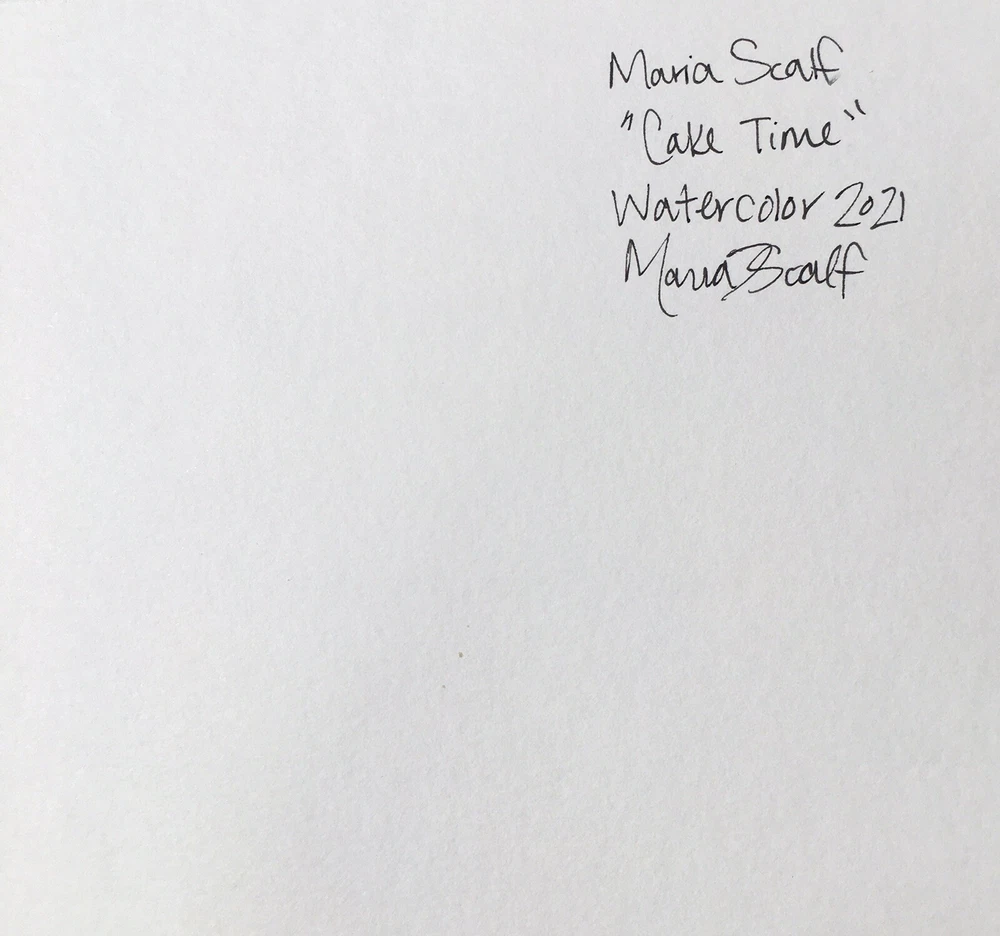 Maria Scalf
"Cake Time"
Watercolor 2021
Maria Scalf